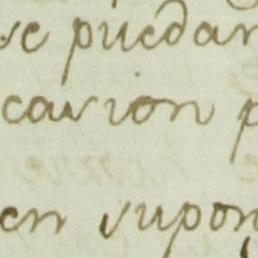 se puedan
casion p
en supon